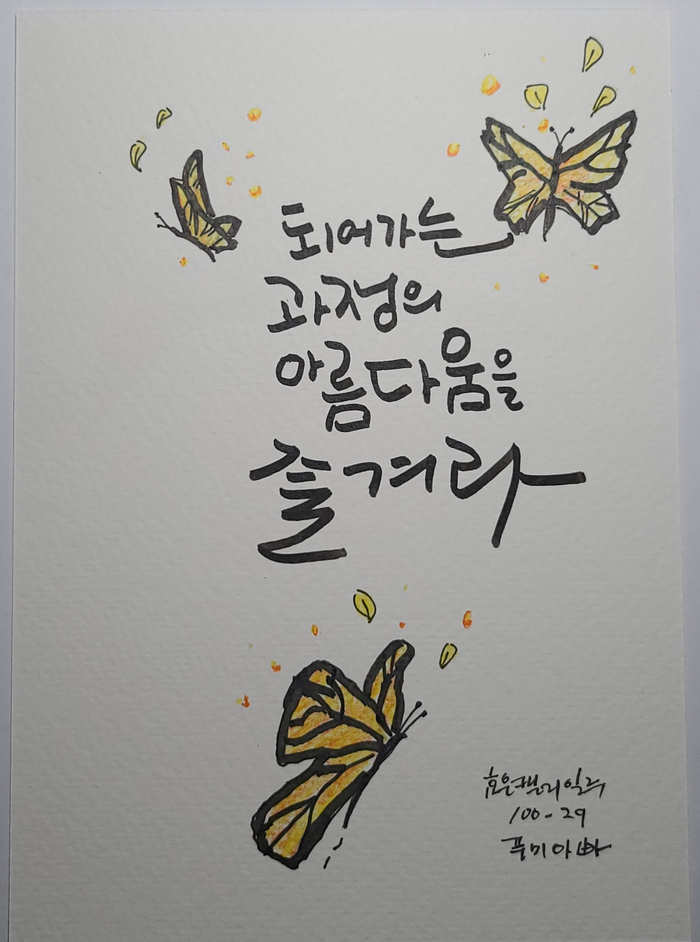 되어가는
과정의
아름다움을
즐겨라
효은캘리일러
100-29
푸미아빠